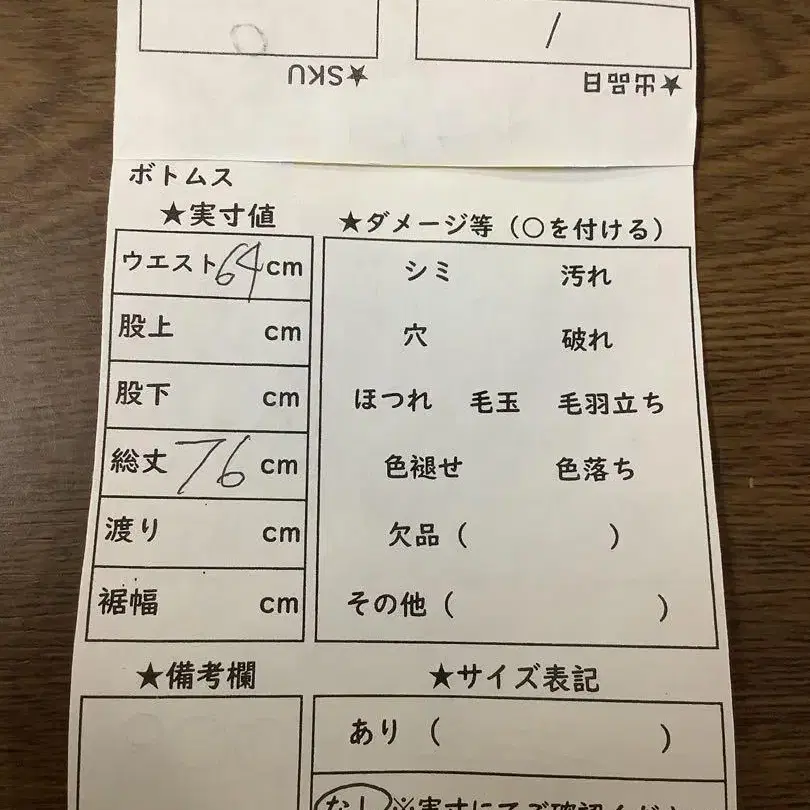 ★出品日
/
★SKU
ボトムス
★実寸値
ウエスト64cm
股上 cm
股下 cm
総丈 76 cm
渡り cm
裾幅 cm
★ダメージ等（○を付ける）
シミ 汚れ
穴 破れ
ほつれ 毛玉 毛羽立ち
色褪せ 色落ち
欠品（ ）
その他（ ）
★備考欄
★サイズ表記
あり（ ）
なし※実寸にてご確認くださ